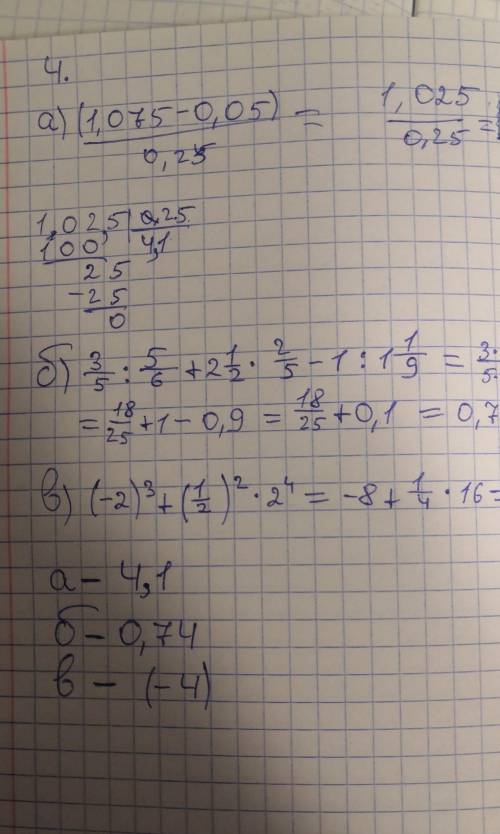 4.
а) (1,075 - 0,05) / 0,25 = 1,025 / 0,25 =
1,02,5 | 0,25
100 | 4,1
25
- 25
0
б) 3/5 : 5/6 + 2 1/2 · 2/5 - 1 : 1 1/9 = 3· / 5·
= 18/25 + 1 - 0,9 = 18/25 + 0,1 = 0,7
в) (-2)³ + (1/2)² · 2⁴ = -8 + 1/4 · 16 =
а - 4,1
б - 0,74
в - (-4)